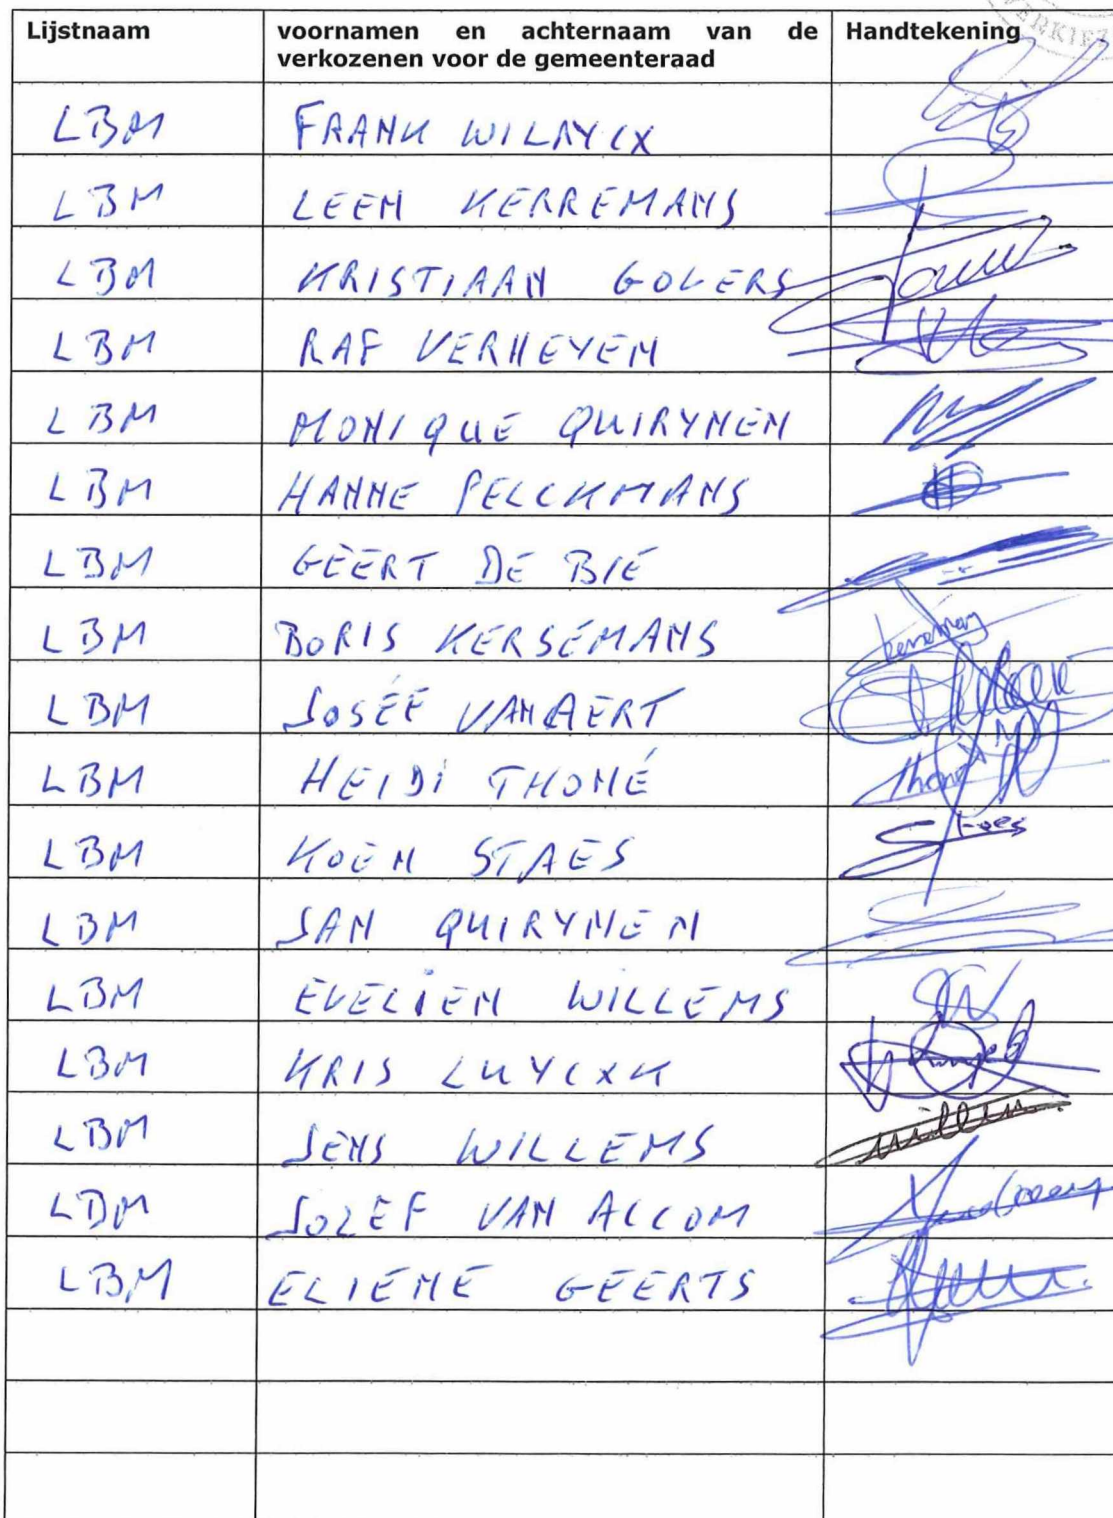 Lijstnaam voornamen en achternaam van de Handtekening
verkozenen voor de gemeenteraad
LBM FRANK WILRYCX
LBM LEEN KERREMANS
LBM KRISTIAAN GOVERS
LBM RAF VERHEYEN
LBM MONIQUE QUIRYNEN
LBM HANNE PELCKMANS
LBM GEERT DE BIE
LBM BORIS KERSEMANS
LBM JOSÉE VAN AERT
LBM HEIDI THOMÉ
LBM KOEN STAES Staes
LBM JAN QUIRYNEN
LBM EVELIEN WILLEMS
LBM KRIS LUYCKX
LBM JENS WILLEMS
LBM JOZEF VAN
LBM ELIENE GEERTS